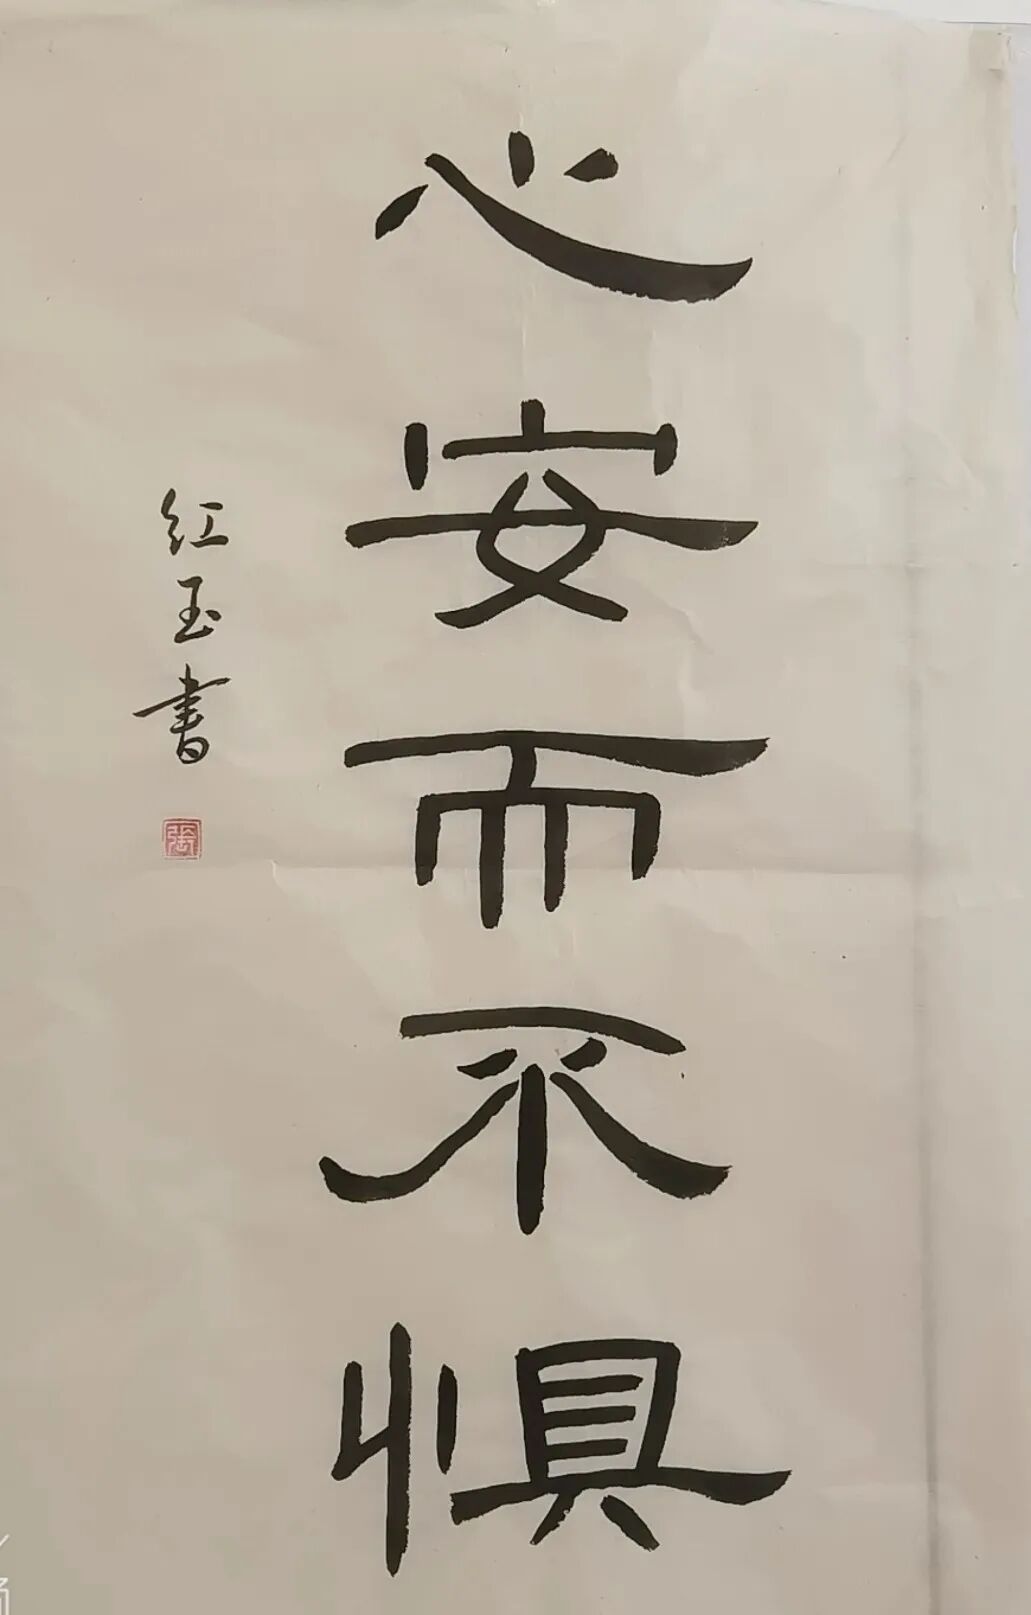 心安而不惧
红玉書
張